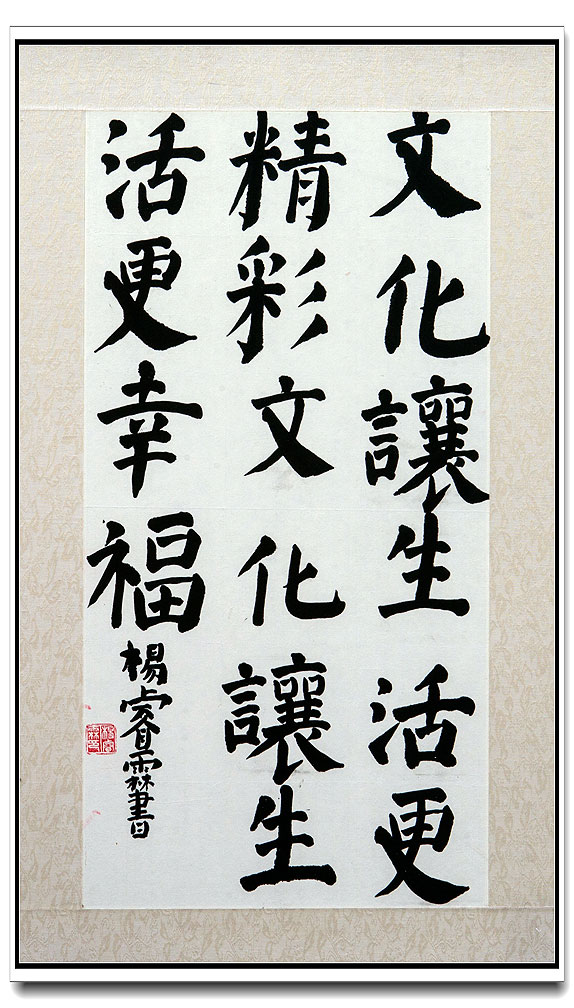 文化讓生活更
精彩文化讓生
活更幸福
楊睿霖書